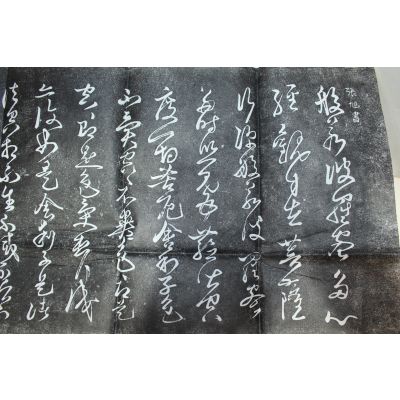 張旭書
般若波羅蜜多心
經觀自在菩薩
行深般若波羅蜜
多時照見五蘊皆空
度一切苦厄舍利子色
不異空空不異色色即是
空空即是色受想行識
亦復如是舍利子是諸
法空相不生不滅